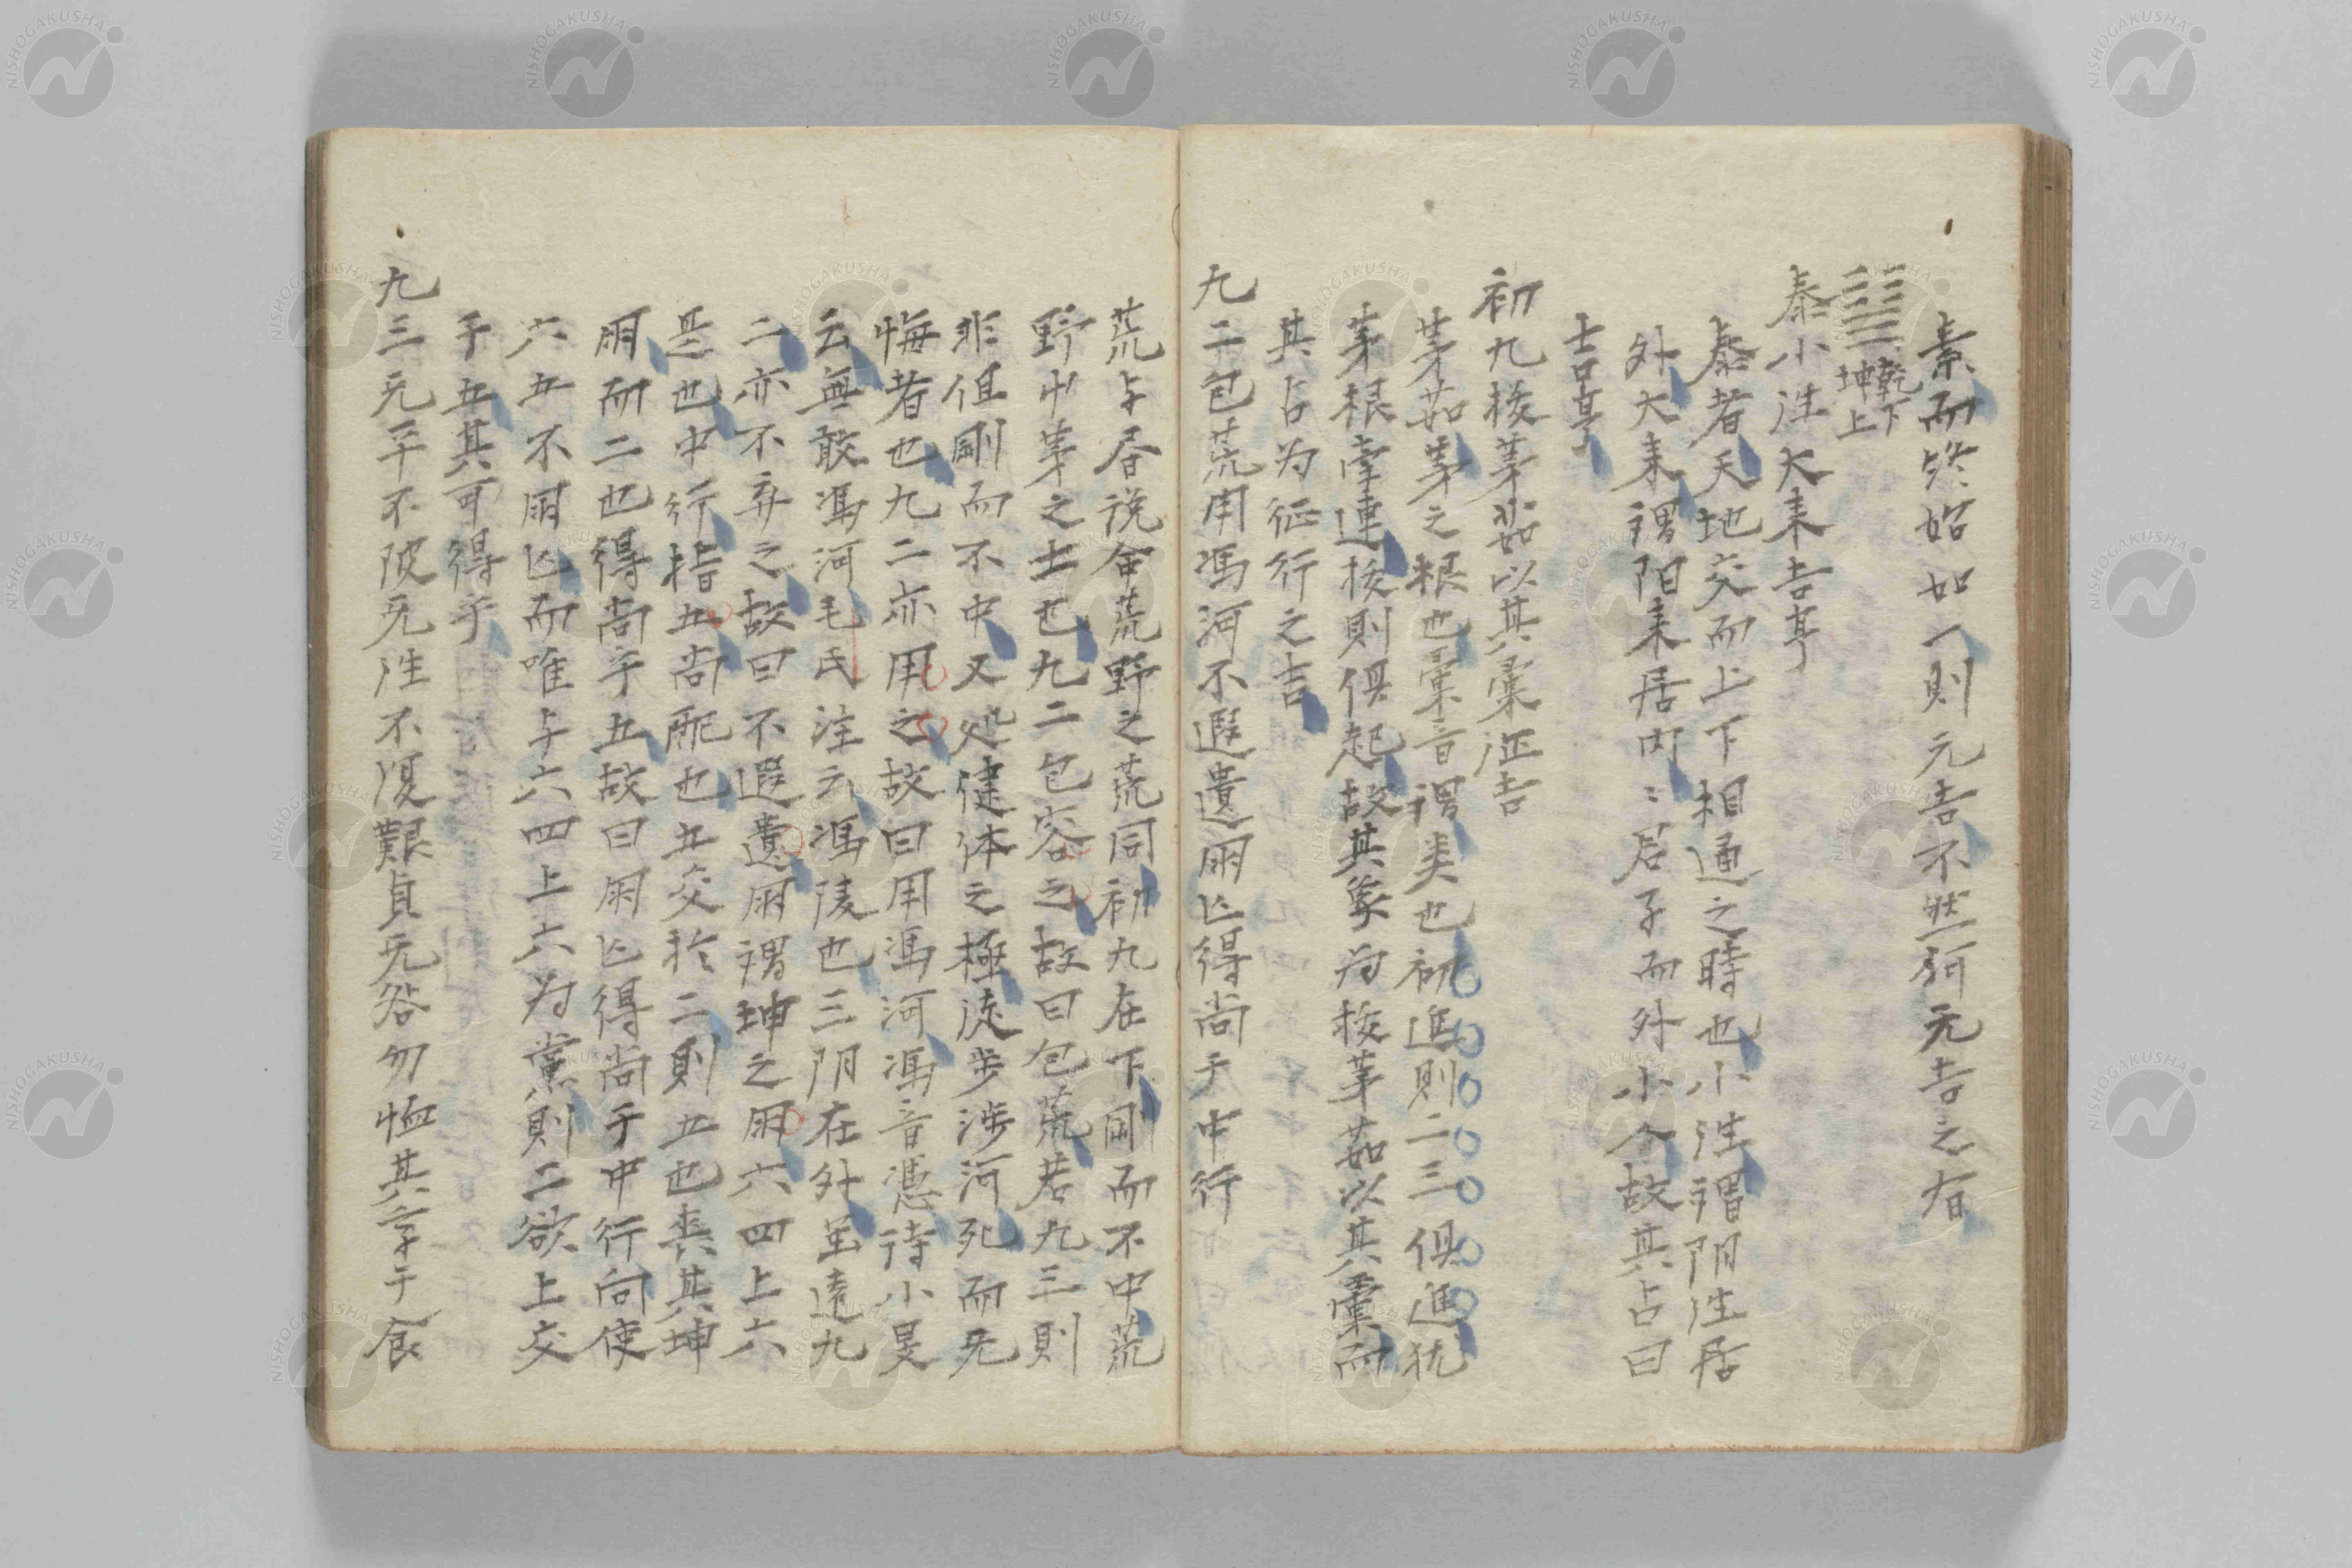 素而終始如一則元吉不然何元吉之有
䷊ 乾下坤上
泰小往大来吉亨
泰者天地交而上下相通之時也小往謂阴往居
外大来謂阳来居内〻君子而外小人故其占曰
吉亨
初九拔茅茹以其彙征吉
茅茹茅之根也彙音謂类也初進則二三俱進犹
茅根牽連拔則俱起故其象为拔茅茹以其彙而
其占为征行之吉
九二包荒用馮河不遐遺朋亡得尚于中行
荒与昏説命荒野之荒同初九在下剛而不中荒
野中茅之士也九二包容之故曰包荒若九三則
非但剛而不中又処健体之極徒步涉河死而无
悔者也九二亦用之故曰用馮河馮音憑待小旻
云無敢馮河毛氏注云馮陵也三阴在外虽遠九
二亦不弃之故曰不遐遺朋謂坤之朋六四上六
是也中行指五尚配也五交於二則五也喪其坤
朋而二也得尚于五故曰朋亡得尚于中行向使
六五不朋亡而唯与六四上六为黨則二欲上交
于五其可得乎
九三无平不陂无往不復艱貞无咎勿恤其孚于食
NISHOGAKUSHA